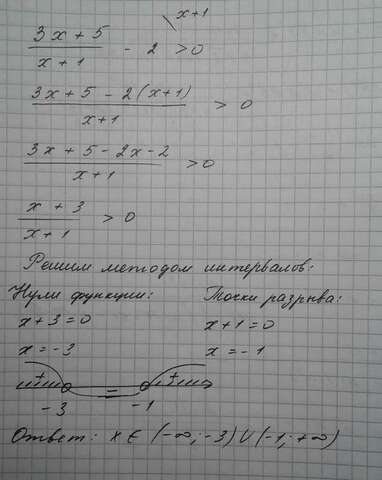 x+1
(3x + 5)/(x + 1) - 2 > 0
(3x + 5 - 2(x+1))/(x+1) > 0
(3x + 5 - 2x - 2)/(x+1) > 0
(x + 3)/(x + 1) > 0
Решим методом интервалов:
Нули функции: Точки разрыва:
x + 3 = 0 x + 1 = 0
x = -3 x = -1
+ − +
-3 -1
Ответ: x ∈ (-∞; -3) ∪ (-1; +∞)